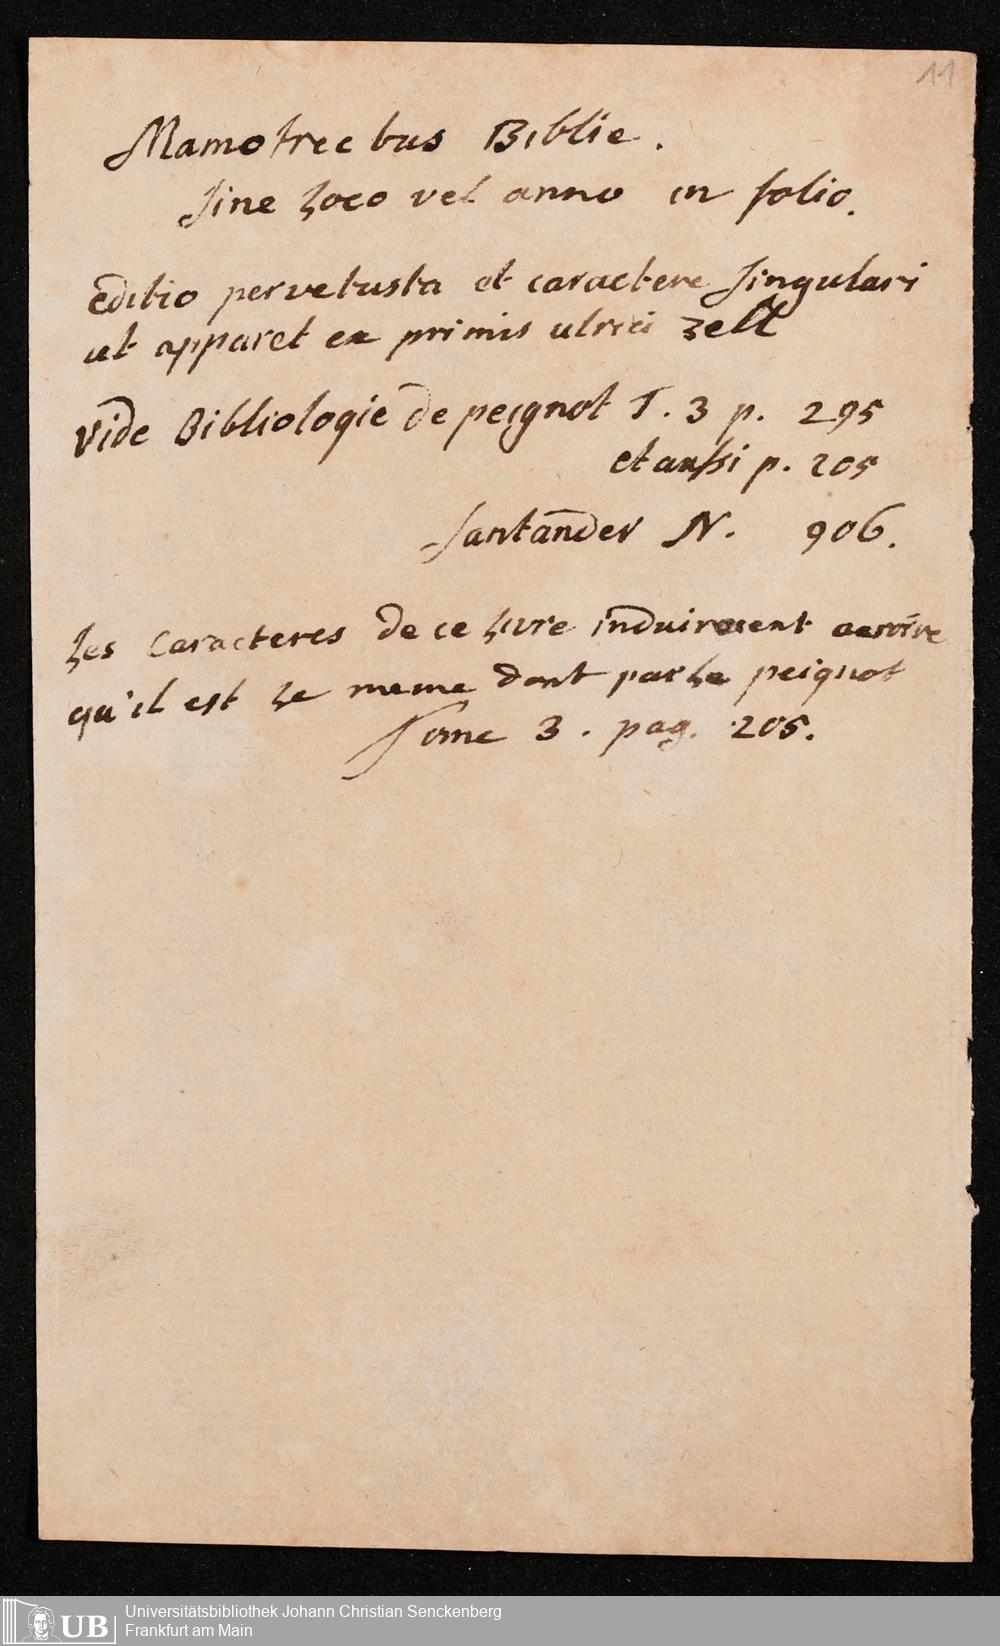 11
Mamotrectus Biblie.
Sine Loco vel anno in folio.
Editio pervetusta et caractere Singulari
ut apparet ex primis ulrici zell
vide Bibliologie de peignot T. 3 p. 295
et aussi p. 205
Santander N. 906.
Les Caracteres de ce Livre induiroient acroire
qu'il est Le meme dont parle peignot
Tome 3. pag. 205.
UB
Universitätsbibliothek Johann Christian Senckenberg
Frankfurt am Main